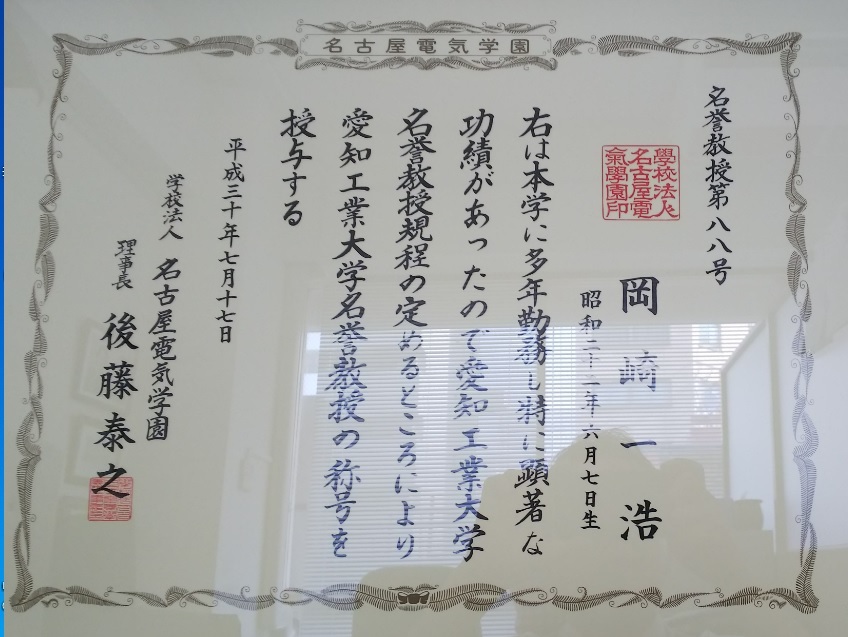 名古屋電気学園
名誉教授第八八号
學校法人
名古屋電
氣學園印
岡崎一浩
昭和二十一年六月七日生
右は本学に多年勤務し特に顕著な
功績があったので愛知工業大学
名誉教授規程の定めるところにより
愛知工業大学名誉教授の称号を
授与する
平成三十年七月十七日
学校法人 名古屋電気学園
理事長 後藤泰之